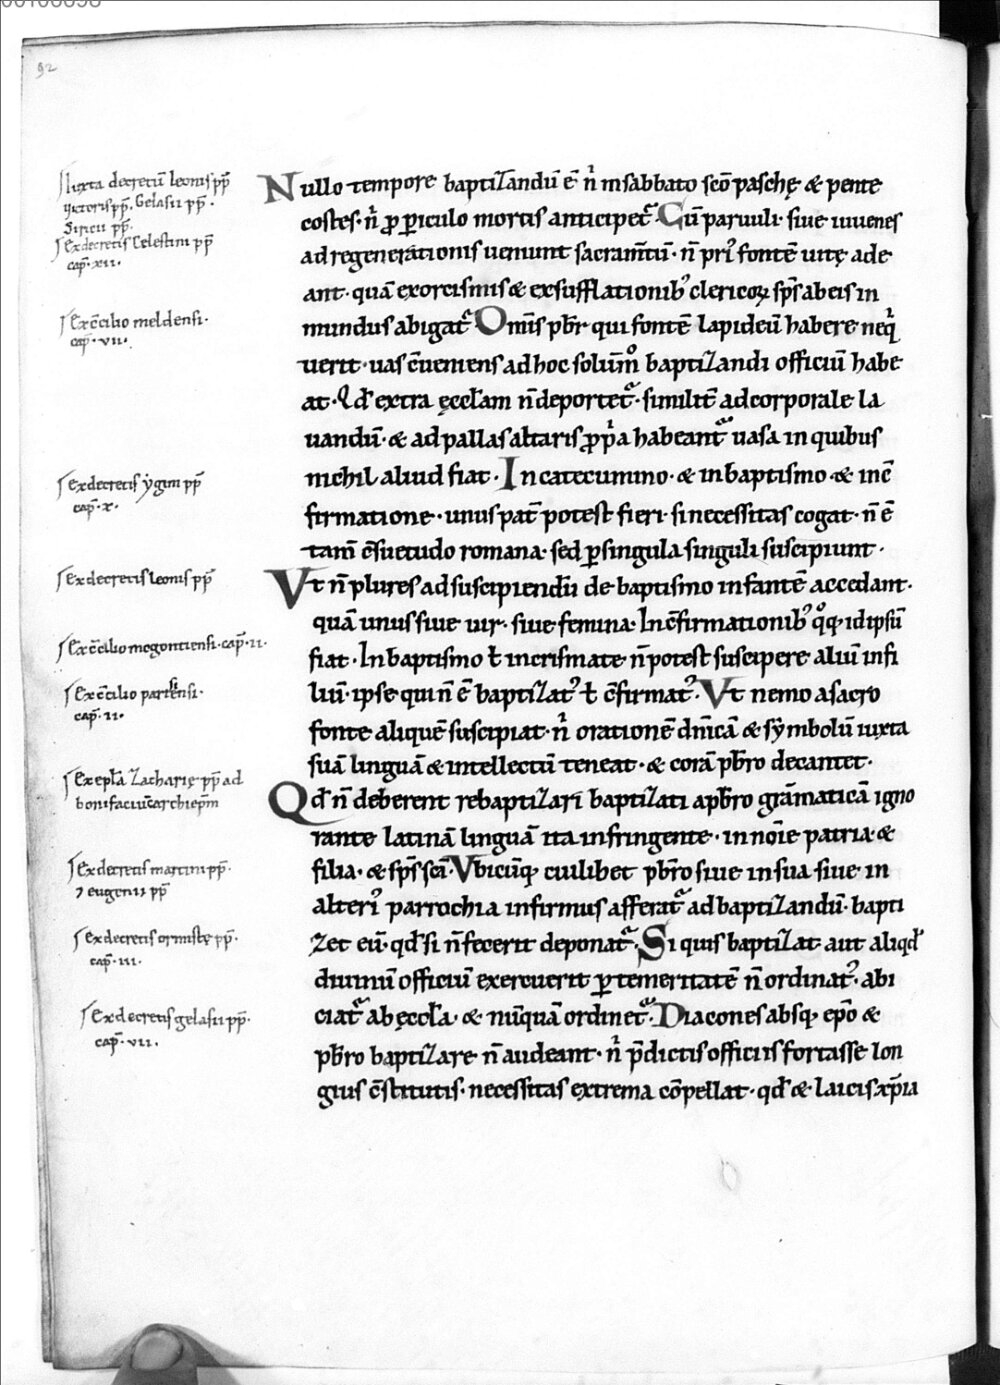 92
Iuxta decretū leonis pp̄
uictoris pp̄. Gelasii pp̄.
Siricii pp̄.
Ex decretis Celestini pp̄
cap̄. xii.
Ex c̄cilio meldensi.
cap̄. vii.
Ex decretis ẏgini pp̄
cap̄. x.
Ex decretis leonis pp̄
Ex c̄cilio mogontiensi. cap̄. ii.
Ex c̄cilio
cap̄. ii.
Ex ep̄la Zacharię pp̄ ad
bonifaciū archiep̄m
Ex decretis martini pp̄.
⁊ eugenii pp̄
Ex decretis ormistę pp̄.
cap̄. iii.
Ex decretis gelasii pp̄.
cap̄. vii.
Nullo tempore baptizandū ē n̄ in sabbato sc̄o paschę & pente
costes. n̄ ꝓ ꝑiculo mortis anticipet᷑. Cū paruuli siue iuuenes
ad regenerationis ueniunt sacram̄tū. n̄ pri᷒ fontē uitę ade
ant. quā exorcismis & exsufflationib᷒ clericoꝝ sp̄s ab eis in
mundus abigat᷑. Om̄is pb̄r qui fontē lapideū habere neq̇
uerit. uas c̄ueniens ad hoc solum̊ baptizandi officiū habe
at. Qd̄ extra ęccl̄am n̄ deportet᷑. similit̄ ad corporale la
uandū. & ad pallas altaris ꝓpia habeant᷑ uasa in quibus
nichil aliud fiat. In catecumino. & in baptismo. & in c̄
firmatione. unus pat̄ potest fieri. si necessitas cogat. n̄ ē
tam̄ c̄suetudo romana. sed ꝑ singula singuli suscipiunt.
Vt n̄ plures ad suscipiendū de baptismo infantē accedant.
quā unus siue uir. siue femina. In c̄firmationib᷒ q̊q; id ipsū
fiat. In baptismo ł in crismate n̄ potest suscipere aliū in fi
liū. ipse qui n̄ ē baptizat᷒ ł c̄firmat᷒. Vt nemo a sacro
fonte aliquē suscipiat. n̄ orationē dn̄icā & sẏmbolū iuxta
suā linguā & intellectū teneat. & corā pb̄ro decantet.
Qd̄ n̄ deberent rebaptizari baptizati a pb̄ro grāmaticā igno
rante latinā linguā ita infringente. in noīe patria &
filia. & sp̄s sc̄i. Vbicūq; cuilibet pb̄ro siue in sua siue in
alteri᷒ parrochia infirmus afferat᷑ ad baptizandū. bapti
zet eū. qd̄ si n̄ fecerit deponat᷑. Si quis baptizat aut aliqd̄
diuinū officiū exercuerit ꝑ temeritatē n̄ ordinat᷒. abi
ciat᷑ ab ęccl̄a. & nūquā ordinet᷑. Diacones absq; ep̄o &
pb̄ro baptizare n̄ audeant. n̄ p̄dictis officiis fortasse lon
gius c̄stitutis. necessitas extrema cōpellat. qd̄ & laicis xp̄ia